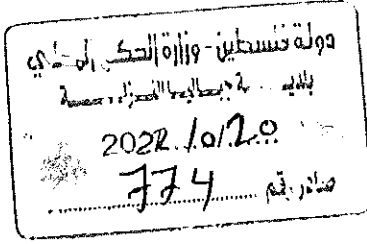 دولة فلسطين - وزارة الحكم المحلي
بلدية جباليا النزلة
2022/10/20
صادر رقم 774